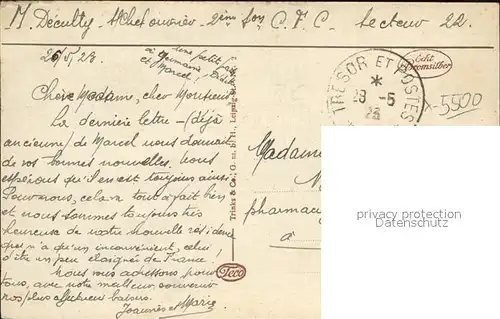 M. Decultÿ - S/Chef ouvrier - 2ème Son C.F.C. Secteur 22.
26/5/23
une petite
à Germaine
et Marcel!
Chère Madame, cher Monsieur
La dernière lettre - (déjà
ancienne) de Marcel nous donnait
de vos bonnes nouvelles. Nous
espérons qu'il en est toujours ainsi.
Pour nous, cela va tout à fait bien
et nous sommes toujours très
heureux de notre nouvelle résidence
qui n'a qu'un inconvénient, celui
d'être un peu éloignée de France.
Nous vous adressons pour
tous, avec notre meilleur souvenir
nos plus affectueux baisers.
Joannès et Marie
Trinks & Co., G. m. b. H., Leipzig
Teco
TRÉSOR ET POSTES
*
28 - 5
23
Echt
Bromsilber
5500
Madame
pharmac
à
privacy protection
www.oldthing.de